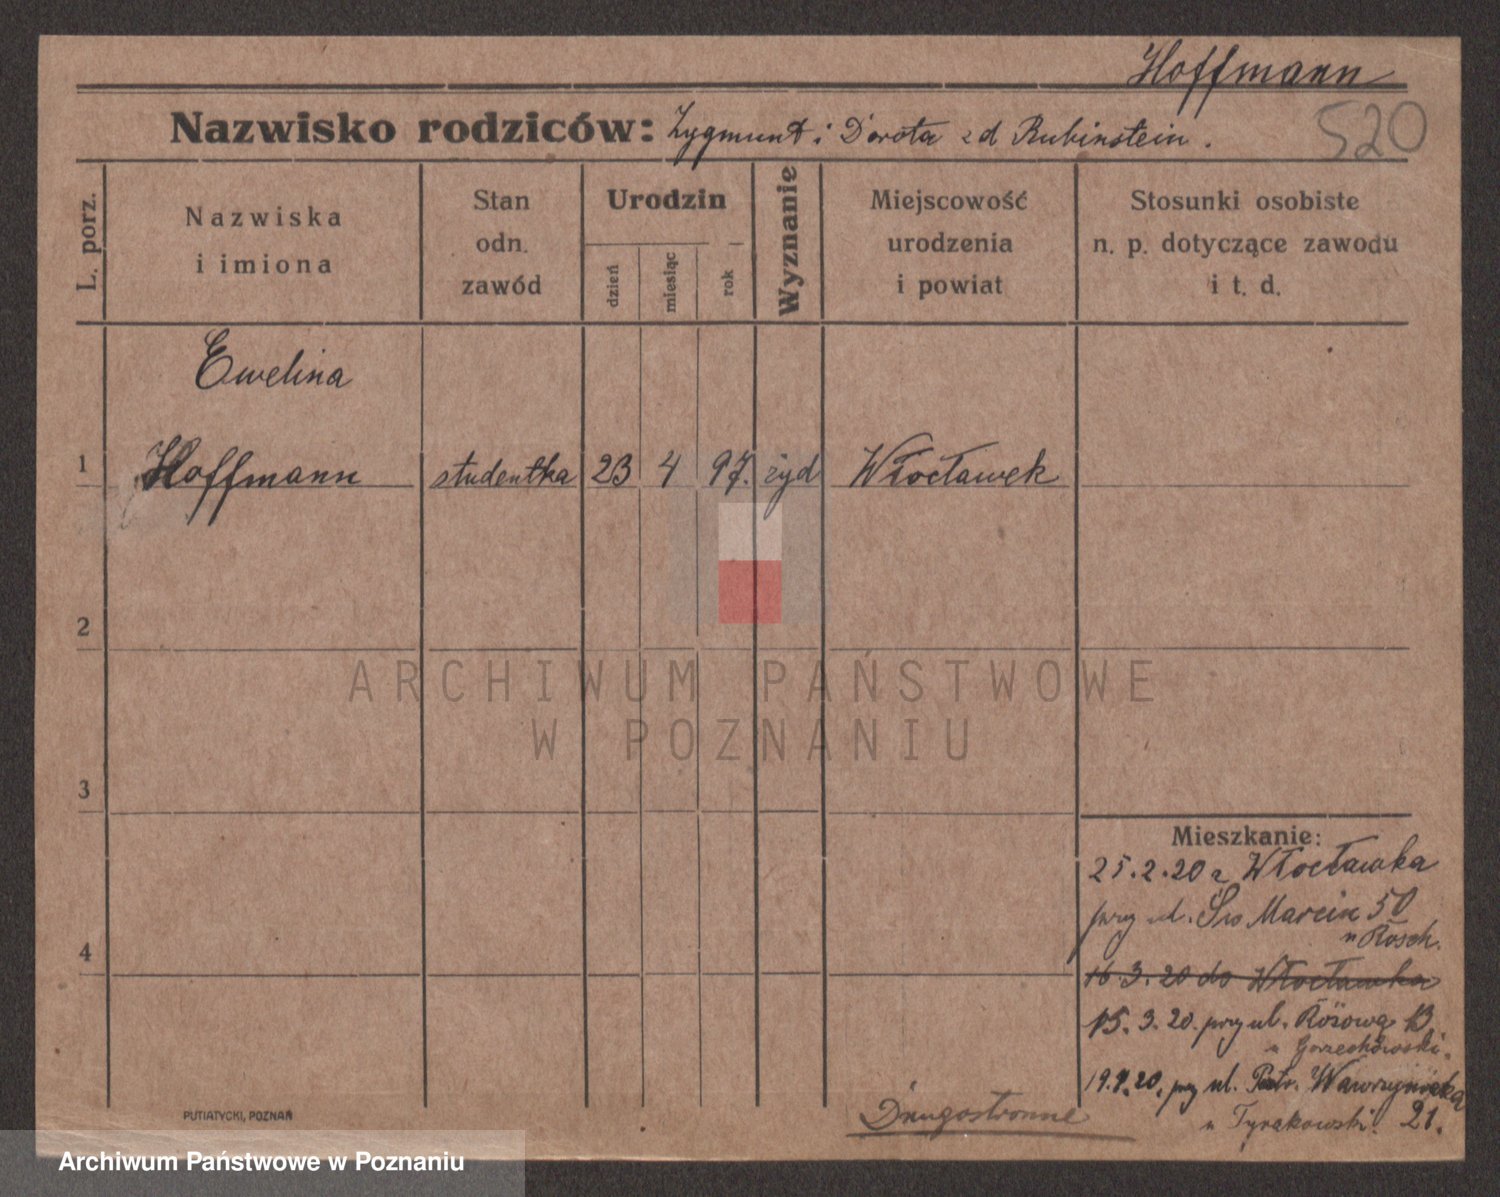 Hoffmann
520
Nazwisko rodziców: Zygmunt i Dorota zd Rubinstein.
L. porz.
Nazwiska
i imiona
Stan
odn.
zawód
Urodzin
dzień
miesiąc
rok
Wyznanie
Miejscowość
urodzenia
i powiat
Stosunki osobiste
n. p. dotyczące zawodu
i t. d.
Ewelina
1 Hoffmann studentka 23 4 97. żyd Włocławek
2
ARCHIWUM PAŃSTWOWE
W POZNANIU
3
Mieszkanie:
25.2.20 z Włocławka
przy ul. Św Marcin 50
u Rosch.
4
16.3.20 do Włocławka
15.3.20. przy ul. Różową 13
u Gorzechowski.
19.4.20. przy ul. Wawrzyniecka
u Tyrakowski. 21.
Drugostronne
PUTIATYCKI, POZNAŃ
Archiwum Państwowe w Poznaniu